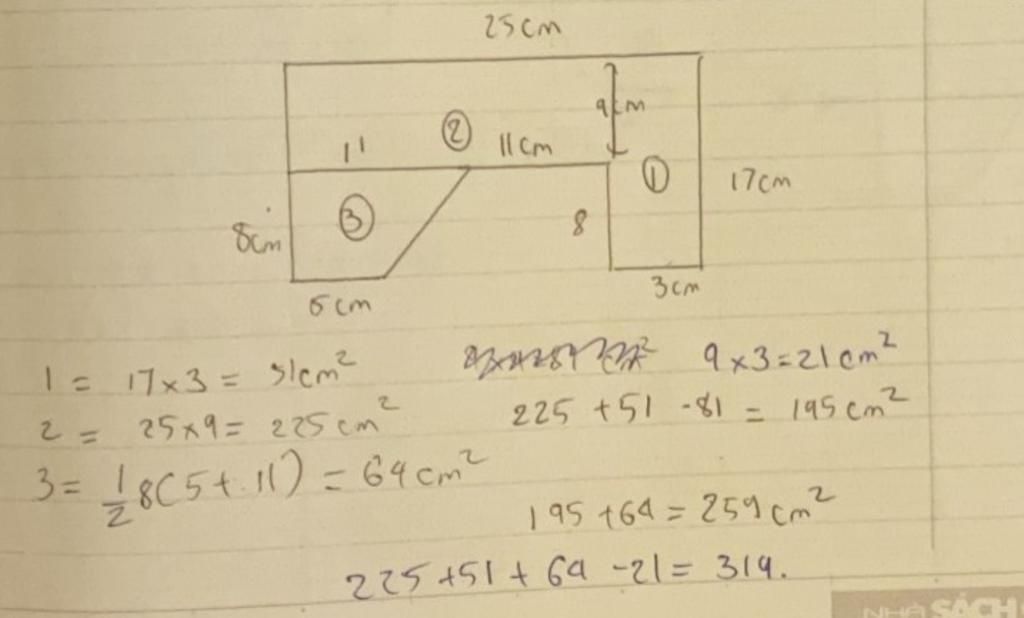 25cm
9cm
2
11
11cm
1
17cm
3
8cm
8
3cm
5cm
1 = 17×3 = 51cm²
9×3=21cm²
2 = 25×9= 225cm²
225 +51 -81 = 195cm²
3= 1/2 8(5+11) = 64cm²
195+64=259cm²
225+51+64-21= 319.
NHÀ SÁCH